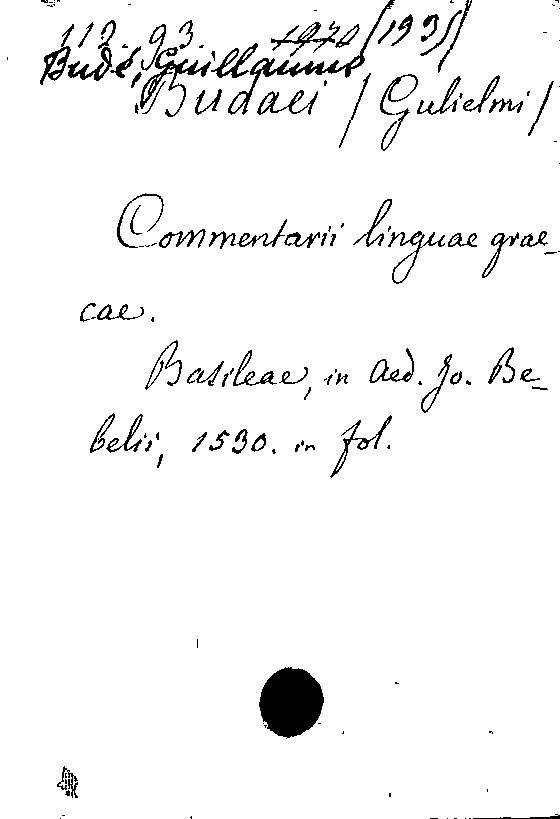 113 93 1970 (1931)
Budé, Guillaume
Budaei (Gulielmi)
Commentarii linguae grae-
cae.
Basileae, in Aed. Jo. Be-
belii, 1530. in fol.